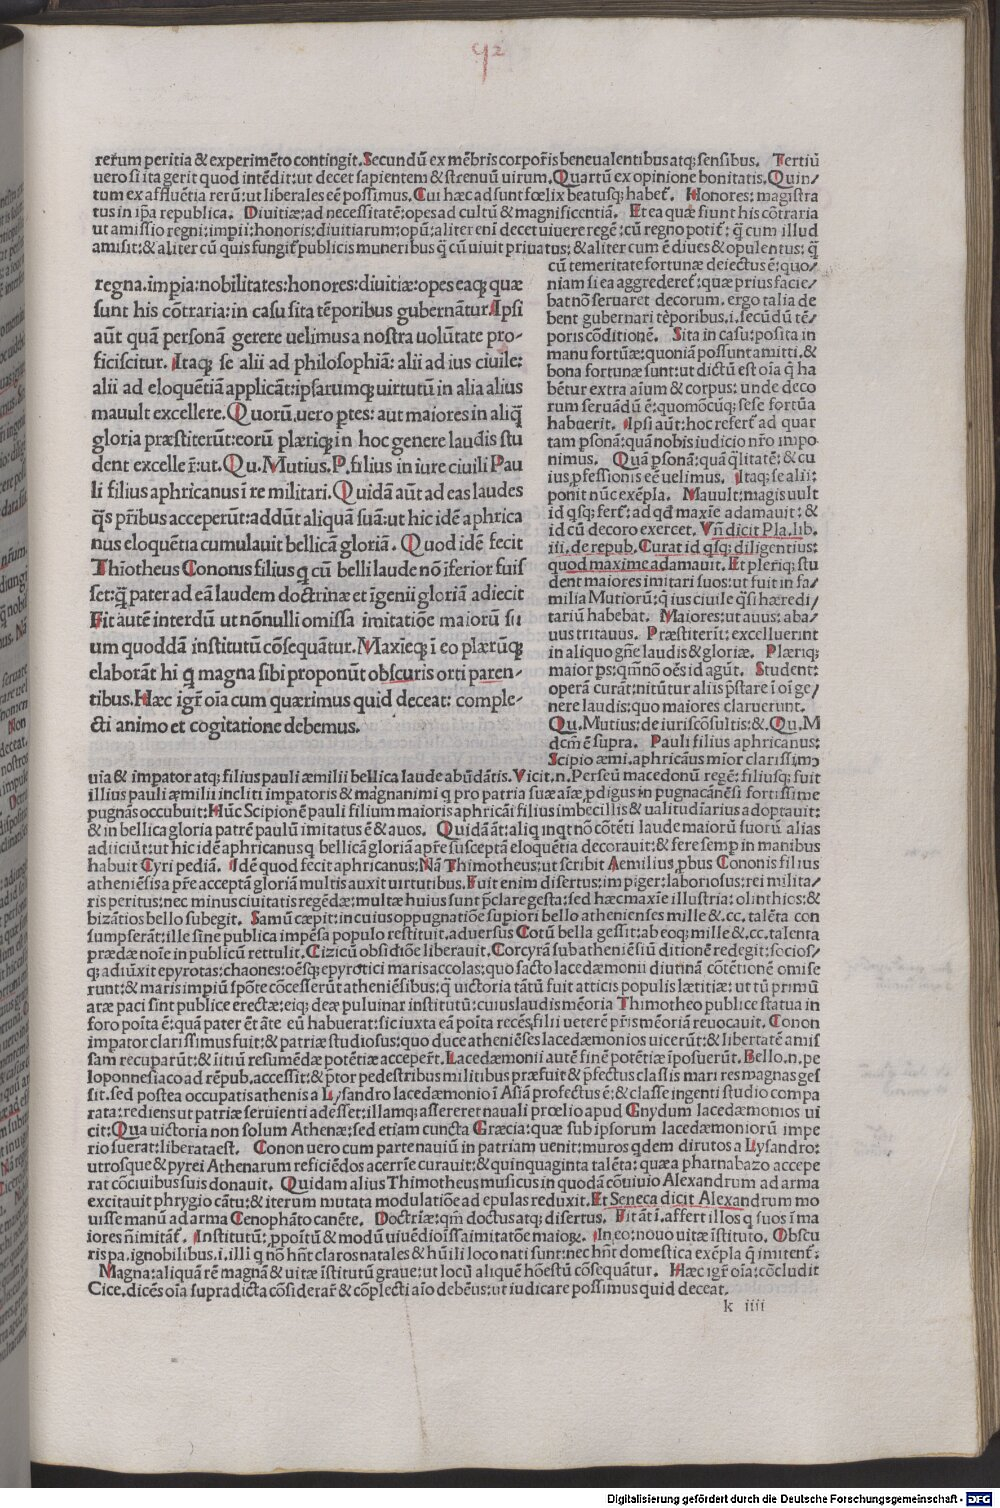 92
rerum peritia & experimēto contingit. Secundū ex mēbris corporis beneualentibus atq; sensibus. Tertiū
uero si ita gerit quod intēdit: ut decet sapientem & strenuū uirum. Quartū ex opinione bonitatis. Quin⸗
tum ex affluētia rerū: ut liberales eē possimus. Cui hæc adsunt fœlix beatusq; habet̄. Honores: magistra
tus in ip̄a republica. Diuitiæ: ad necessitatē: opes ad cultū & magnificentiā. Et ea quæ siunt his cōtraria
ut amissio regni: impii: honoris: diuitiarum: opū: aliter eni decet uiuere regē: cū regno potit̄: q̄ cum illud
amisit: & aliter cū quis fungit̄ publicis muneribus q̄ cū uiuit priuatus: & aliter cum ē diues & opulentus: q̄
regna. impia: nobilitates: honores: diuitiæ: opes eaq; quæ
sunt his cōtraria: in casu sita tēporibus gubernātur. Ipsi
aūt quā personā gerere uelimus a nostra uolūtate pro-
ficiscitur. Itaq; se alii ad philosophiā: alii ad ius ciuile:
alii ad eloquētiā applicāt: ipsarumq; uirtutū in alia alius
mauult excellere. Quorū. uero p̱tes: aut maiores in aliq̄
gloria præstiterūt: eorū plæriq; in hoc genere laudis stu
dent excellere: ut. Qu. Mutius. P. filius in iure ciuili Pau
li filius aphricanus ī re militari. Quidā aūt ad eas laudes
q̄s pr̄ibus acceperūt: addūt aliquā suā: ut hic idē aphrica
nus eloquētia cumulauit bellicā gloriā. Quod idē fecit
Thīotheus Cononis filius q̄ cū belli laude nō īferior fuis
set: q̄ pater ad eā laudem doctrinæ et īgenii gloriā adiecit
Fit autē interdū ut nōnulli omissa imitatiōe maiorū su
um quoddā institutū cōsequātur. Maxīeq; ī eo plærūq;
elaborāt hi q̄ magna sibi proponūt obscuris orti paren-
tibus. Hæc igr̄ oīa cum quærimus quid deceat: comple-
cti animo et cogitatione debemus.
cū temeritate fortunæ deiectus ē: quo⸗
niam si ea aggrederet̄: quæ prius facie⸗
bat nō seruaret decorum. ergo talia de
bent gubernari tēporibus. i. secūdū tē⸗
poris cōditionē. Sita in casu: posita in
manu fortūæ: quoniā possunt amitti. &
bona fortunæ sunt: ut dictū est oīa q̄ ha
bētur extra aīum & corpus: unde deco
rum seruādū ē: quomōcūq; sese fortūa
habuerit. Ipsi aūt: hoc refert̄ ad quar
tam p̱sonā: quā nobis iudicio nr̄o impo
nimus. Quā p̱sonā: quā q̄litatē: & cu
ius p̱fessionis eē uelimus. Itaq; se alii:
ponit nūc exēpla. Mauult: magis uult
id q̄sq; fert̄: ad qd̄ maxīe adamauit: &
id cū decoro exercet. Vn̄ dicit Pla. lib.
iii. de repub. Curat id q̄sq; diligentius:
quod maxime adamauit. Et pleriq; stu
dent maiores imitari suos: ut fuit in fa⸗
milia Mutiorū: q̄ ius ciuile q̄si hæredi⸗
tariū habebat. Maiores: ut auus: aba⸗
uus tritauus. Præstiterūt: excelluerint
in aliquo gn̄e laudis & gloriæ. Plæriq;
maior ps: qm̄ nō oēs id agūt. Student:
operā curāt: nitūtur aliis p̄stare ī oī ge⸗
nere laudis: quo maiores claruerunt.
Qu. Mutius: de iuriscōsultis: &. Qu. M
dcm̄ ē supra. Pauli filius aphricanus:
Scipio æmi. aphricāus mior clarissimo
uia & impator atq; filius pauli æmilii bellica laude abūdātis. Vicit. n. Perseū macedonū regē: filiusq; fuit
illius pauli æmilii incliti impatoris & magnanimi q̄ pro patria suæ aīæ p̱digus in pugna cānēsi fortissime
pugnās occubuit: Hūc Scipionē pauli filium maioris aphricāi filius imbecillis & ualitudīarius adoptauit:
& in bellica gloria patrē paulū imitatus ē & auos. Quidā āt: aliq̄ inqt nō cōtēti laude maiorū suorū. alias
adiiciūt: ut hic idē aphricanus q̄ bellicā gloriā a pr̄e susceptā eloquētia decorauit: & fere semp̱ in manibus
habuit Cyri pediā. Idē quod fecit aphricanus: Nā Thimotheus: ut scribit Aemilius p̱bus Cononis filius
atheniēsis a pr̄e acceptā gloriā multis auxit uirtutibus. Fuit enim disertus: impiger: laboriosus: rei milita⸗
ris peritus: nec minus ciuitatis regēdæ: multæ huius sunt p̄clare gesta: sed hæc maxīe illustria: olinthios: &
bizātios bello subegit. Samū cæpit: in cuius oppugnatiōe supiori bello athenienses mille &. cc. talēta con
sumpserāt: ille sīne publica impēsa populo restituit. aduersus Cotū bella gessit: ab eoq; mille &. cc. talenta
prædæ noīe in publicū rettulit. Cizicū obsidiōe liberauit. Corcyrā sub atheniēsiū ditionē redegit: socios⸗
q; adiūxit epyrotas: chaones: oēsq; epyrotici maris accolas: quo facto lacedæmonii diutinā cōtētionē omise
runt: & maris impiū spōte cōcesserūt atheniēsibus: q̄ uictoria tātū fuit atticis populis lætitiæ: ut tū primū
aræ paci sint publice erectæ: eiq; deæ puluinar institutū: cuius laudis mēoria Thimotheo publice statua in
foro poīta ē: quā pater ēr̄ āte eū habuerat: sic iuxta eā poīta recēs filii ueterē pr̄is mēoriā reuocauit. Conon
impator clarissimus fuit: & patriæ studiosus: quo duce atheniēses lacedæmonios uicerūt: & libertatē amis
sam recuparūt: & īitiū resumēdæ potētiæ acceper̄t. Lacedæmonii autē finē potētiæ īposuerūt. Bello. n. pe
loponnesiaco ad rēpub. accessit: & p̄tor pedestribus militibus præfuit & p̄fectus classis mari res magnas ges
sit. sed postea occupatis athenis a Lysandro lacedæmonio ī Asiā profectus ē: & classe ingenti studio compa
rata: rediens ut patriæ seruienti adesset: illamq; assereret nauali prœlio apud Gnydum lacedæmonios ui
cit: Qua uictoria non solum Athenæ: sed etiam cuncta Græcia: quæ sub ipsorum lacedæmoniorū impe
rio fuerat: liberata est. Conon uero cum parte nauiū in patriam uenit: muros qdem dirutos a Lysandro:
utrosque & pyrei Athenarum reficiēdos acerrīe curauit: & quinquaginta talēta: quæ a pharnabazo accepe
rat cōciuibus suis donauit. Quidam alius Thimotheus musicus in quodā cōuiuio Alexandrum ad arma
excitauit phrygio cātu: & iterum mutata modulatiōe ad epulas reduxit. Et Seneca dicit Alexandrum mo
uisse manū ad arma Cenophāto canēte. Doctrīæ: qm̄ doctus atq; disertus. Fit āt ī. affert illos q̄ suos ī ma
iores n̄ imitāt̄. Institutū: p̱poītū & modū uiuēdi oīssa imitatōe maioꝝ. In eo: nouo uitæ īstituto. Obscu
ris pa. ignobilibus. i. illi q̄ nō hn̄t claros natales & hūili loco nati sunt: nec hn̄t domestica exēpla q̄ imitent̄.
Magna: aliquā rē magnā & uitæ īstitutū graue: ut locū aliquē hōestū cōsequātur. Hæc igr̄ oīa: cōcludit
Cice. dicēs oīa supradicta cōsiderar̄ & cōplecti aīo debēus: ut iudicare possimus quid deceat.
k iiii
Digitalisierung gefördert durch die Deutsche Forschungsgemeinschaft - DFG